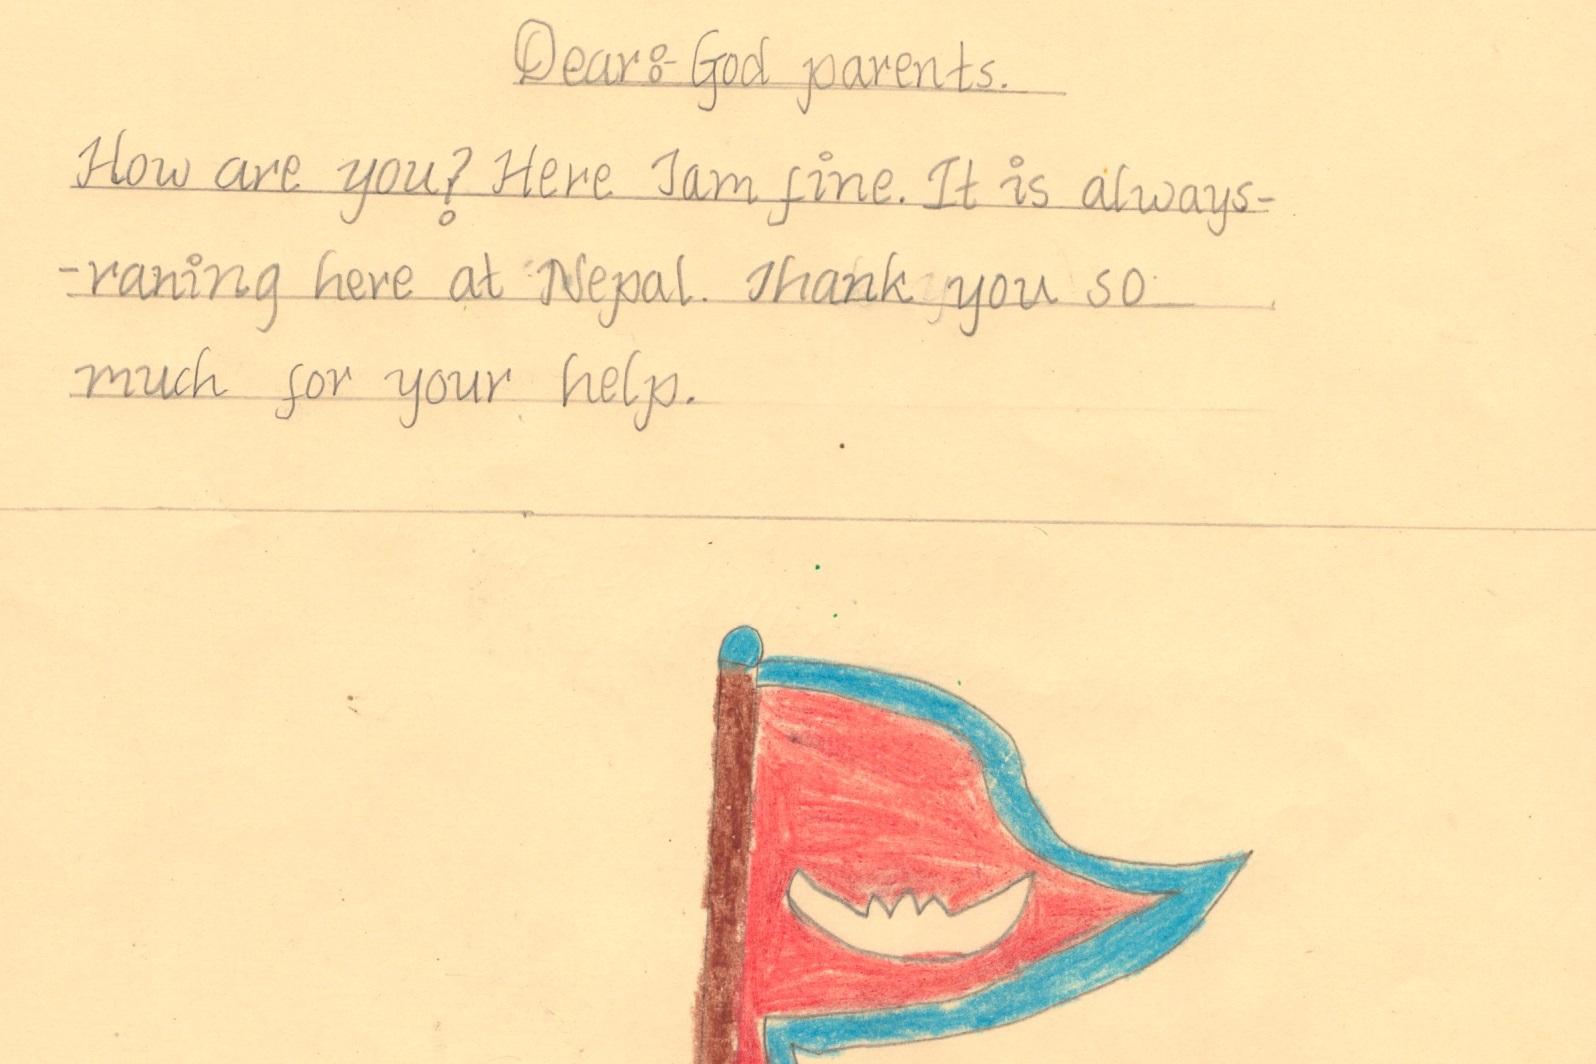 Dear:- God parents.
How are you? Here I am fine. It is always-
-raning here at Nepal. Thank you so
much for your help.